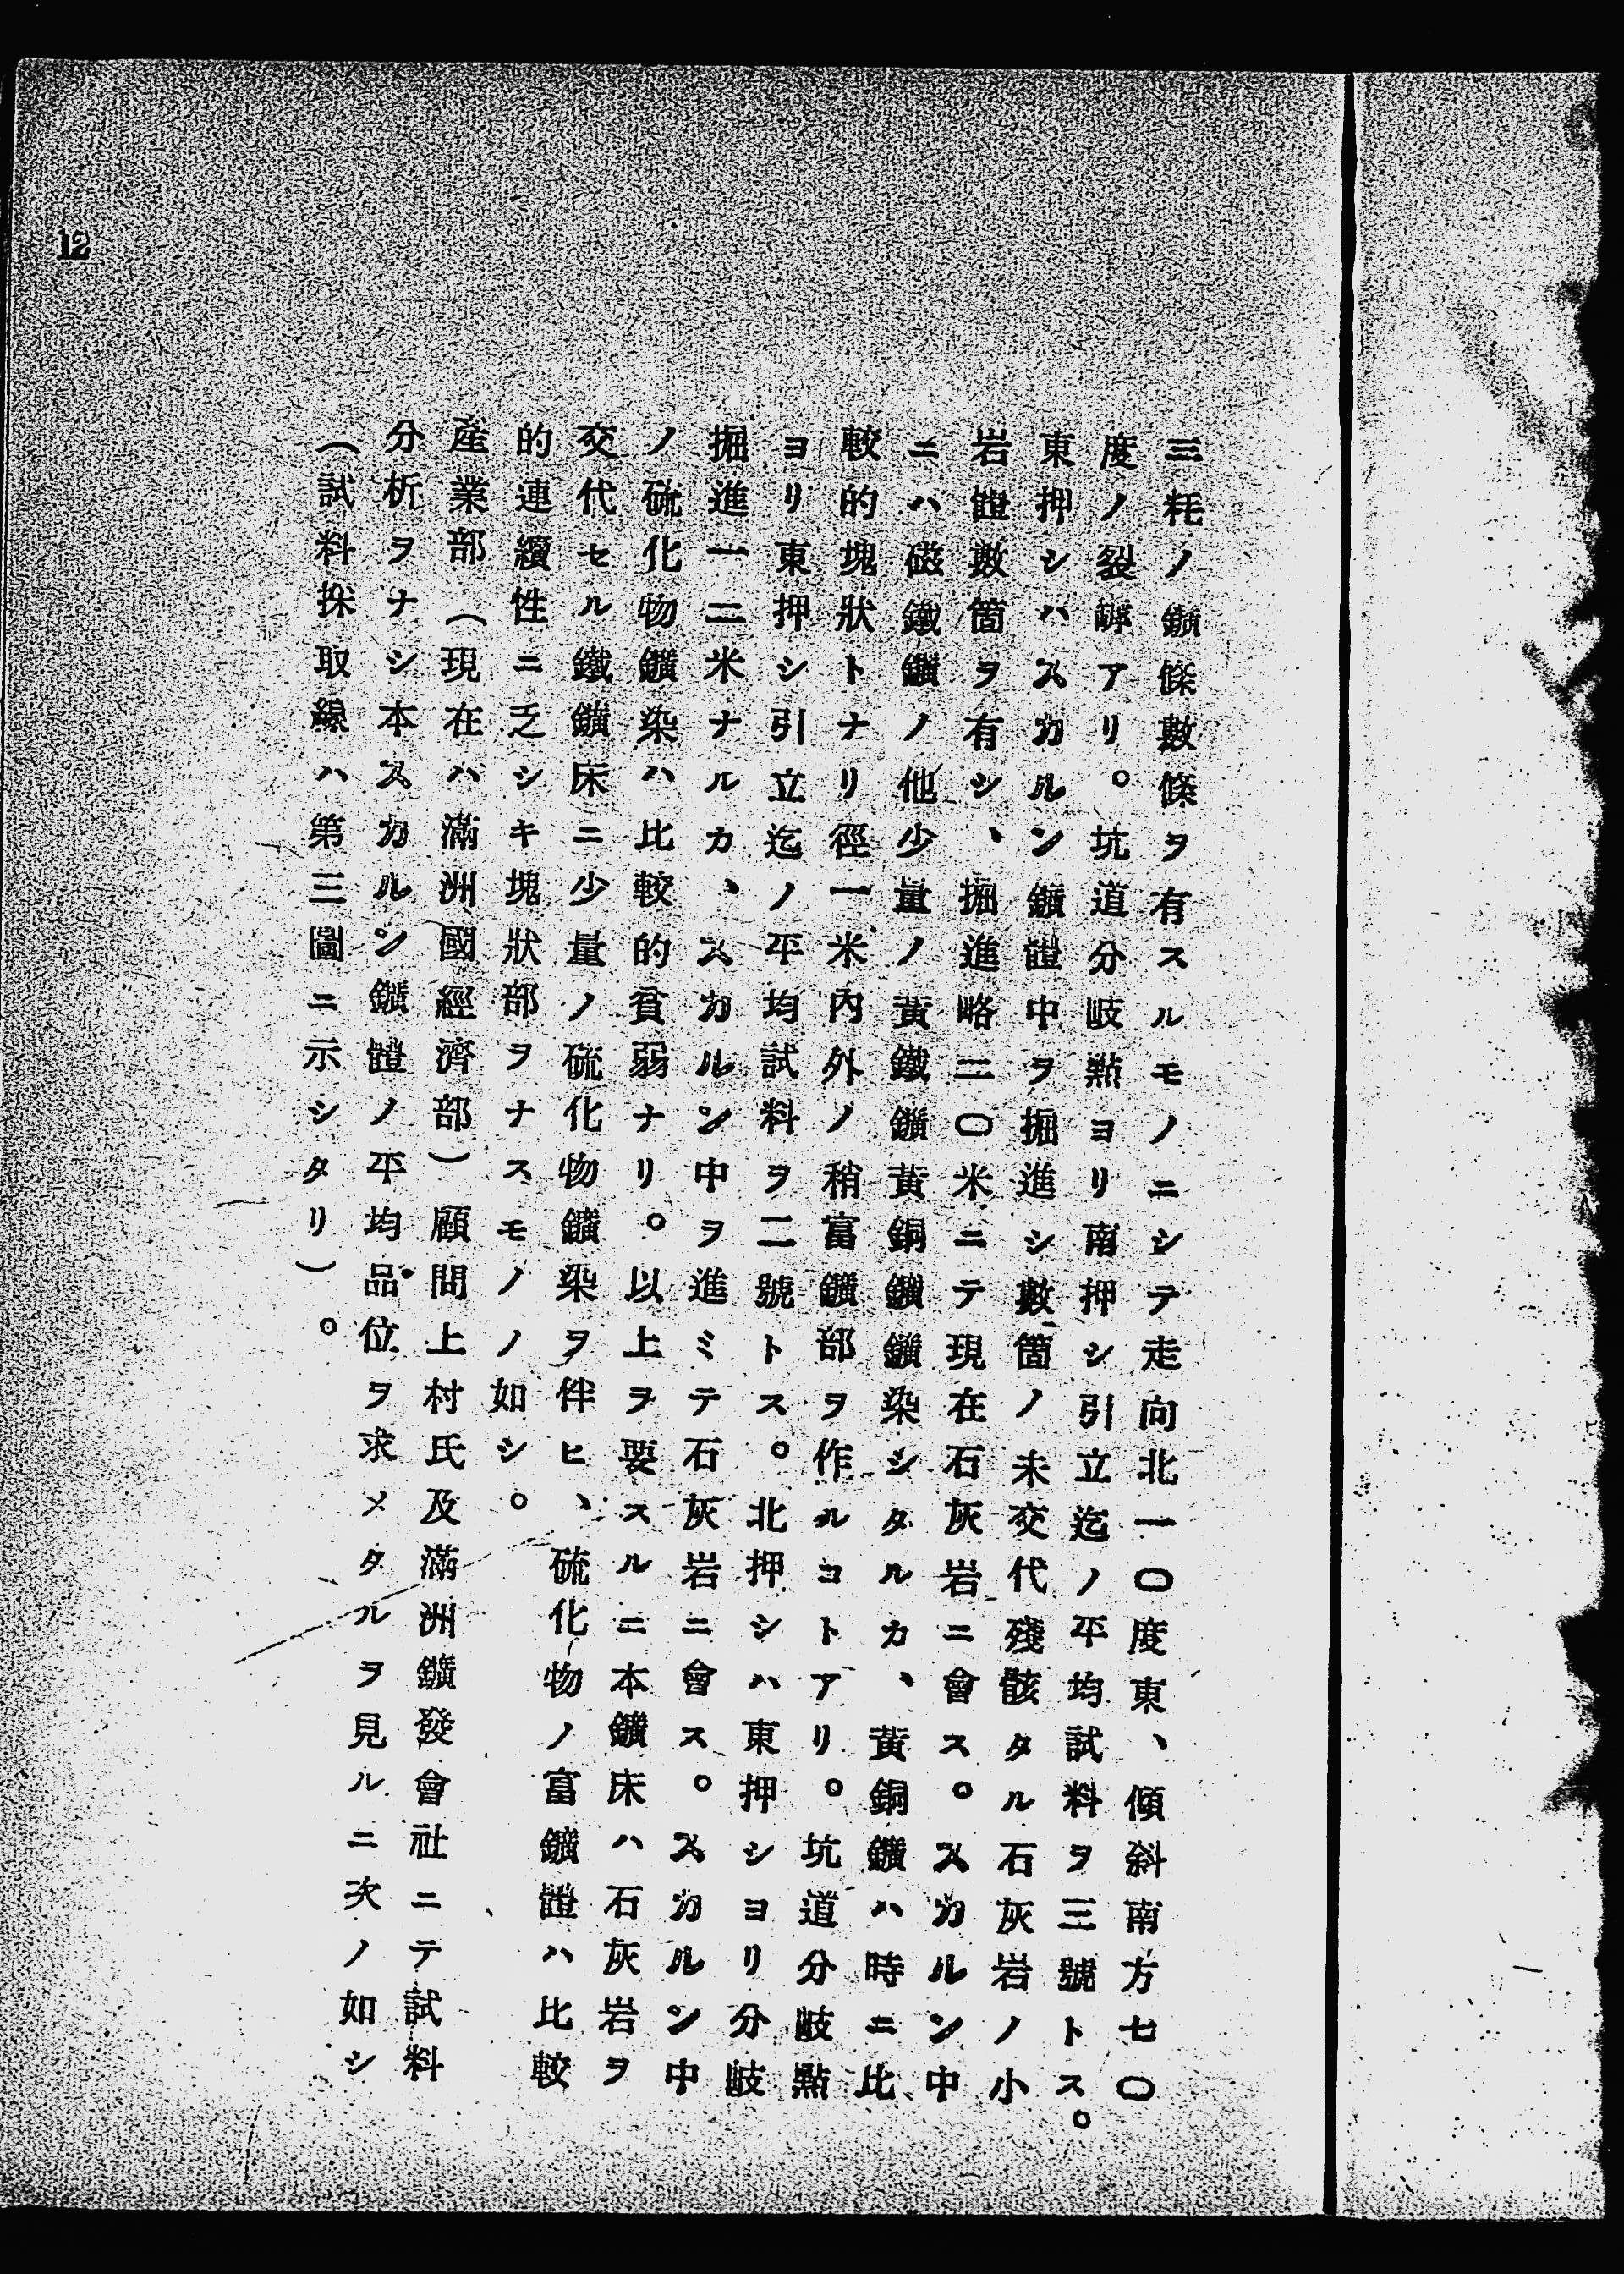 三粍ノ鑛條數條ヲ有スルモノニシテ走向北一〇度東、傾斜南方七〇
度ノ裂罅アリ。坑道分岐點ヨリ南押シ引立迄ノ平均試料ヲ三號トス。
東押シハスカルン鑛體中ヲ掘進シ數箇ノ未交代殘骸タル石灰岩ノ小
岩體數箇ヲ有シ、掘進略二〇米ニテ現在石灰岩ニ會ス。スカルン中
ニハ磁鐵鑛ノ他少量ノ黃鐵鑛黃銅鑛鑛染シタルカ、黃銅鑛ハ時ニ比
較的塊狀トナリ徑一米內外ノ稍富鑛部ヲ作ルコトアリ。坑道分岐點
ヨリ東押シ引立迄ノ平均試料ヲ二號トス。北押シハ東押シヨリ分岐
掘進一二米ナルカ、スカルン中ヲ進ミテ石灰岩ニ會ス。スカルン中
ノ硫化物鑛染ハ比較的貧弱ナリ。以上ヲ要スルニ本鑛床ハ石灰岩ヲ
交代セル鐵鑛床ニ少量ノ硫化物鑛染ヲ伴ヒ、硫化物ノ富鑛體ハ比較
的連續性ニ乏シキ塊狀部ヲナスモノノ如シ。
產業部（現在ハ滿洲國經濟部）顧問上村氏及滿洲鑛發會社ニテ試料
分析ヲナシ本スカルン鑛體ノ平均品位ヲ求メタルヲ見ルニ次ノ如シ
（試料採取線ハ第三圖ニ示シタリ）。
12